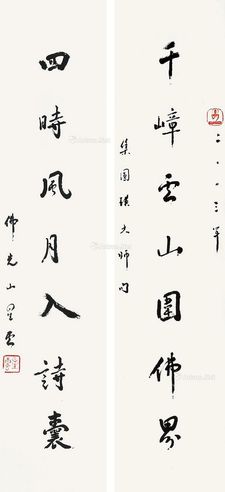 二〇〇三年
千嶂雲山圍佛界
集圓瑛大師句
四時風月入詩囊
佛光山星雲